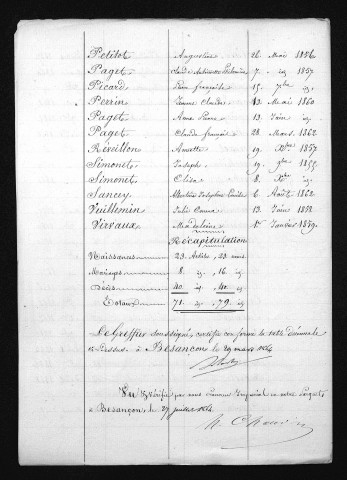 Petitot Augustine 26 Mai 1856
Paget 7 id 1857
Picard française 15 7bre id
Perrin Jeanne Claude 13 Mai 1860
Paget Anne Pierre 13 Juin id
Paget Claude françois 28 Mars 1862
Réveillon Annette 19 Xbre 1857
Simonet Joseph 19 9bre 1855
Simonet Elisa 8 Xbre id
Sancey Joséphine 6 Août 1862
Vuillemin Julie 13 Juin
Virvaux Madeleine 1er Janvier 1859
Récapitulation
Naissances 23 Actes, 23 noms
Mariages 8 id 16 id
Décès 40 id 40 id
Totaux 71 id 79 id
Le Greffier soussigné, certifie conforme la table décennale
ci-dessus. à Besançon le 29 mars 1864
Vu & vérifié par nous Procureur Impérial en notre Parquet
à Besançon, le 27 juillet 1864.